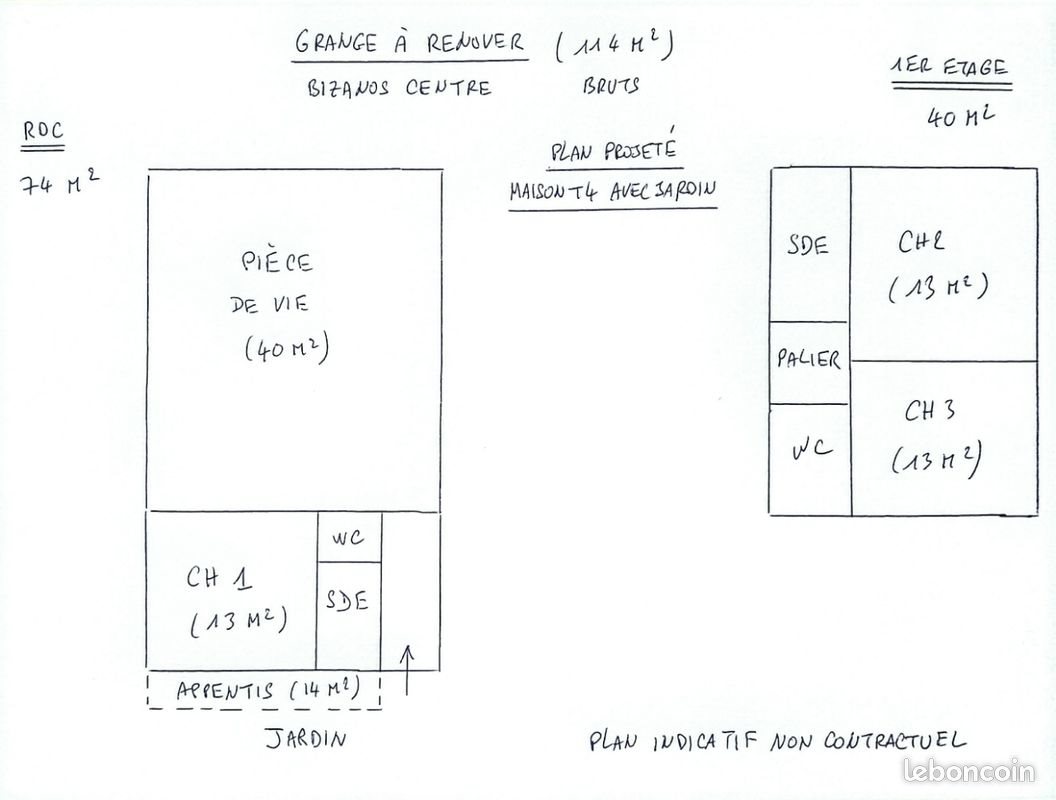 GRANGE À RENOVER (114 M²)
BIZANOS CENTRE BRUTS
1ER ETAGE
40 M²
RDC
74 M²
PLAN PROJETÉ
MAISON T4 AVEC JARDIN
PIÈCE
DE VIE
(40 M²)
CH 1
(13 M²)
WC
SDE
APPENTIS (14 M²)
JARDIN
SDE
CH2
(13 M²)
PALIER
WC
CH 3
(13 M²)
PLAN INDICATIF NON CONTRACTUEL
leboncoin